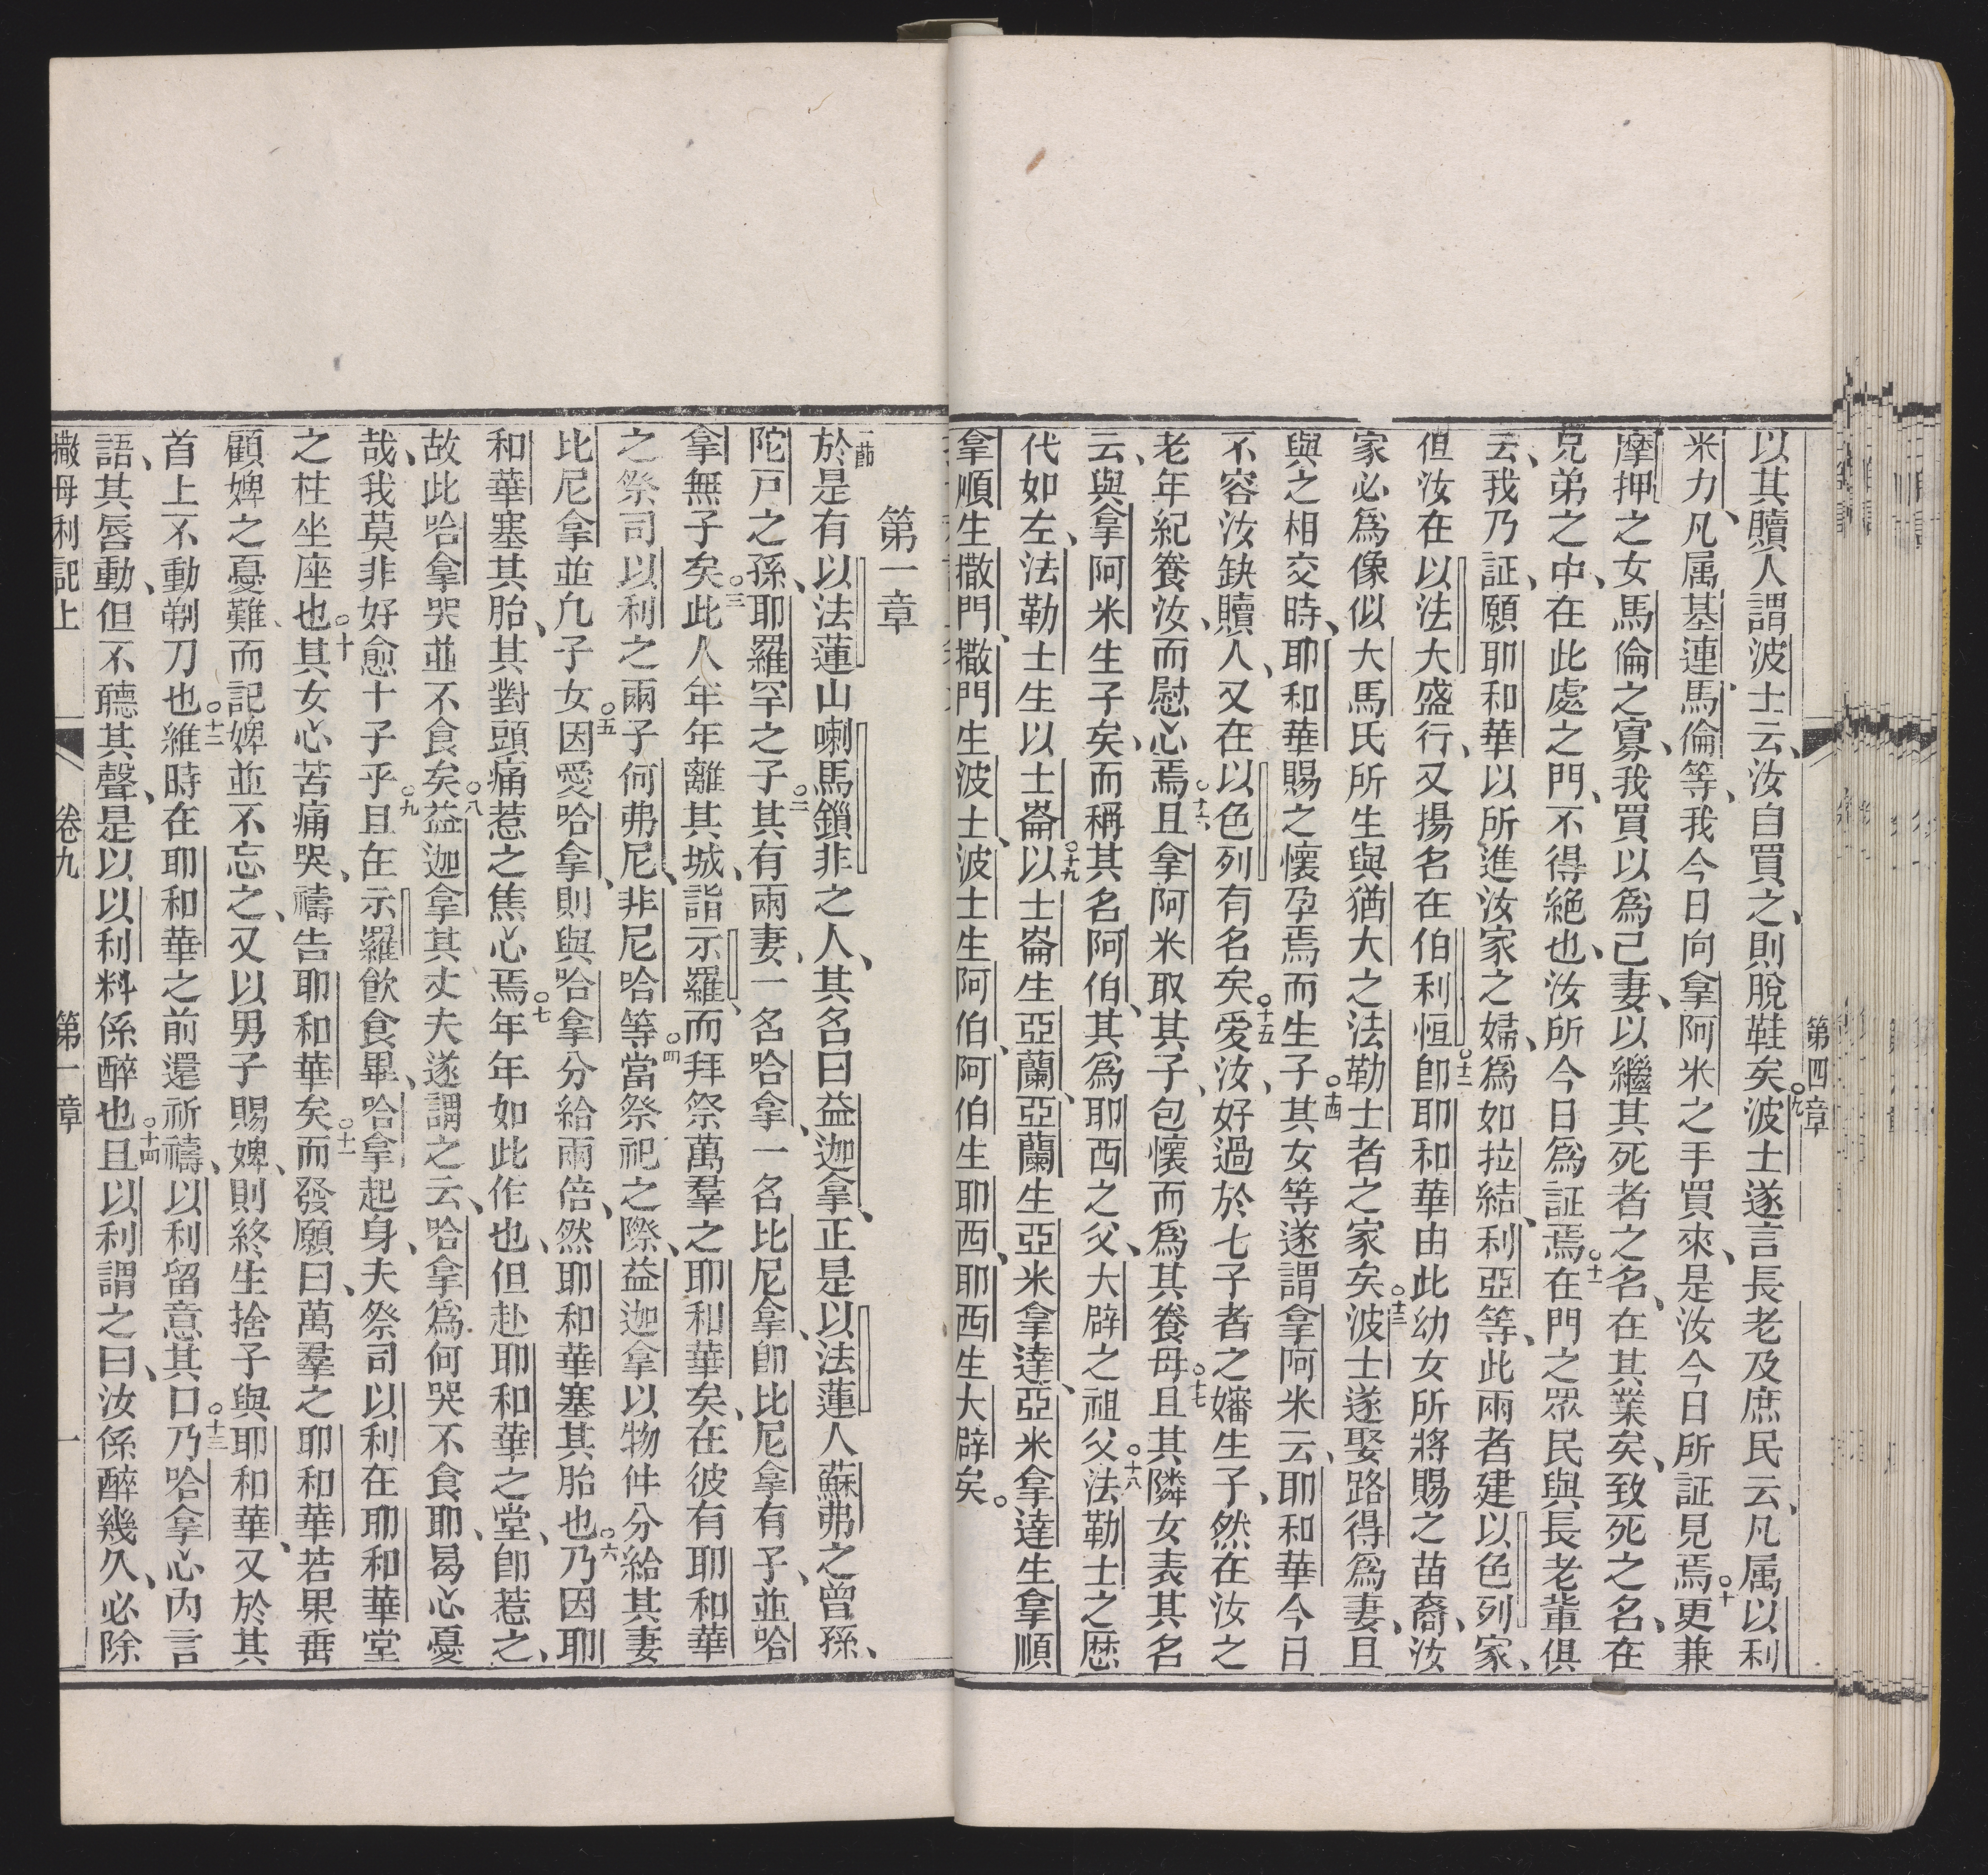 第四章
以其贖人謂波士云、汝自買之、則脫鞋矣○九波士遂言長老及庶民云、凡属以利
米力、凡属基連馬倫等、我今日向拿阿米之手買來、是汝今日所証見焉○十更兼
摩押之女馬倫之寡、我買以為己妻、以繼其死者之名、在其業矣、致死之名、在
兄弟之中、在此處之門、不得絕也、汝所今日為証焉○十一在門之眾民與長老軰俱
云、我乃証、願耶和華以所進汝家之婦、為如拉結、利亞等、此兩者建以色列家、
但汝在以法大盛行、又揚名在伯利恒○十二卽耶和華由此幼女所將賜之苗裔、汝
家必為像似大馬氏所生與猶大之法勒士者之家矣○十三波士遂娶路得為妻、且
與之相交時、耶和華賜之懷孕焉而生子○十四其女等遂謂拿阿米云、耶和華今日
不容汝缺贖人、又在以色列有名矣○十五愛汝、好過於七子者之嬸生子、然在汝之
老年紀養汝、而慰心焉○十六且拿阿米取其子、包懷而為其養母○十七且其隣女表其名
云、與拿阿米生子矣、而稱其名阿伯、其為耶西之父、大辟之祖父○十八法勒士之歴
代如左、法勒士生以士崙○十九以士崙生亞蘭、亞蘭生亞米拿達、亞米拿達生拿順
拿順生撒門、撒門生波士、波士生阿伯、阿伯生耶西、耶西生大辟矣。
第一章
一節於是有以法蓮山喇馬鎖非之人、其名曰益迦拿、正是以法蓮人蘇弗之曾孫、
陀戸之孫、耶羅罕之子○二其有兩妻、一名哈拿、一名比尼拿、卽比尼拿有子、並哈
拿無子矣○三此人年年離其城、詣示羅、而拜祭萬羣之耶和華矣、在彼有耶和華
之祭司以利之兩子何弗尼、非尼哈等○四當祭祀之際、益迦拿以物件分給其妻
比尼拿並凢子女○五因愛哈拿、則與哈拿分給兩倍、然耶和華塞其胎也○六乃因耶
和華塞其胎、其對頭痛惹之焦心焉○七年年如此作也、但赴耶和華之堂、卽惹之、
故此哈拿哭並不食矣○八益迦拿其丈夫遂謂之云、哈拿為何哭不食耶、曷心憂
哉、我莫非好愈十子乎○九且在示羅飲食畢、哈拿起身、夫祭司以利在耶和華堂
之柱坐座也○十其女心苦痛哭、禱告耶和華矣○十一而發願曰、萬羣之耶和華若果垂
顧婢之憂難、而記婢並不忘之、又以男子賜婢、則終生捨子與耶和華、又於其
首上不動剃刀也○十二維時在耶和華之前還祈禱、以利留意其口○十三乃哈拿心內言
語、其唇動、但不聽其聲、是以以利料係醉也○十四且以利謂之曰、汝係醉幾久、必除
撒母利記上　卷九　第一章　一